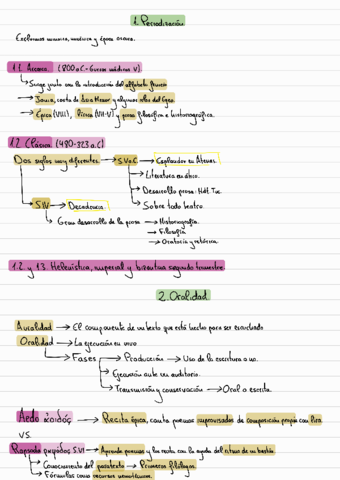 1. Periodización
Excluimos minoica, micénica y época oscura.
1.1. Arcaica. (800 a.C-Guerras médicas V)
↳ Surge junto con la introducción del alfabeto fenicio
→ Jonia, costa de Asia Menor y algunas islas del Egeo.
↳ Épica (VIII), lírica (VII-V) y prosa filosófica e historiográfica.
1.2. Clásica. (480-323 a.C)
Dos siglos muy diferentes. → S.V a.C → Esplendor en Atenas.
→ Literatura en ático.
→ Desarrollo prosa: Hdt. Tuc.
→ Sobre todo teatro
S.IV → Decadencia.
↳ Gran desarrollo de la prosa → Historiografía.
→ Filosofía
→ Oratoria y retórica.
1.2. y 1.3. Helenística, imperial y bizantina segundo trimestre.
2. Oralidad
Auralidad → El componente de un texto que está hecho para ser escuchado
Oralidad → La ejecución en vivo
↳ Fases → Producción → Uso de la escritura o no.
Ejecución ante un auditorio.
→ Transmisión y conservación → Oral o escrita.
Aedo ἀοιδός → Recita épica, canta poemas improvisados de composición propia con lira
VS.
Rapsoda ῥαψῳδός S.VI → Aprende poemas y los recita con la ayuda del ritmo de un bastón.
↳ Conocimiento del paratexto → Primeros filólogos.
↳ Fórmulas como recursos nemotécnicos.